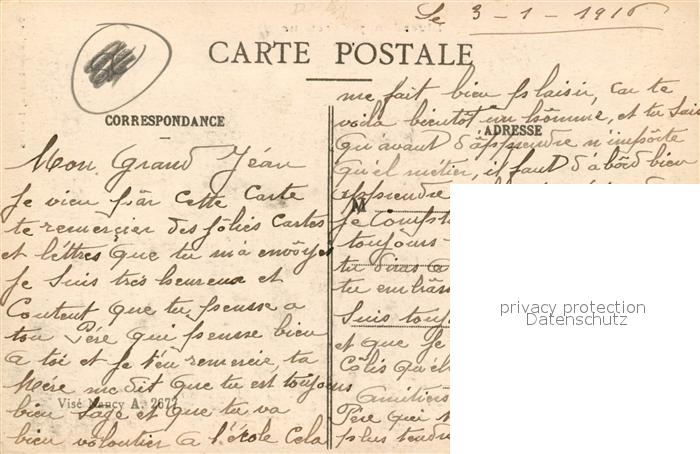 Le 3-1-1916
CARTE POSTALE
CORRESPONDANCE
ADRESSE
Mon Grand Jéan
Je vien par cette Carte
te remerçier des jôlies Cartes
et léttres que tu m'a envôyé
Je suis trés heureux et
Coutent que tu pensse a
ton Pére qui pensse bien
a toi et je t'en remercie, ta
Mére me dit que tu est toujours
bien Sage et que tu va
bien volontier a l'école Cela
Visé Nancy A. 2677
me fait bien plaisir, car te
voila bientôt un hômme, et tu Sais
qu'avant d'apprendre n'impôrte
qu'el métier, il faut d'abôrd bien
apprendre
M
Je Compt
toujôurs
tu diras a
tu embras
Suis touj
et que Je
Côlis qu'el
Amitiers
Pére qui t
plus tendre
privacy protection
Datenschutz